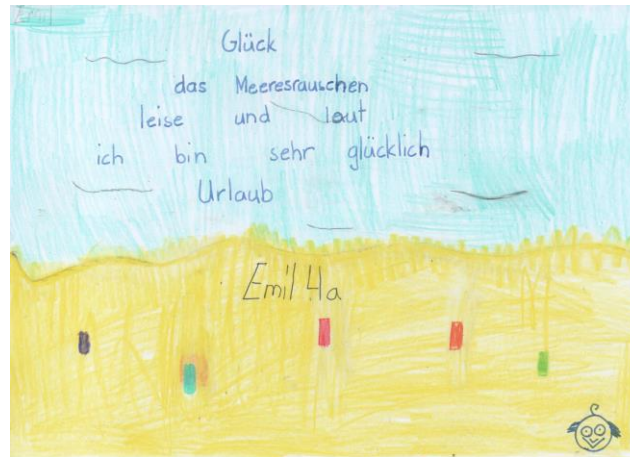 Glück
das Meeresrauschen
leise und laut
ich bin sehr glücklich
Urlaub
Emil 4a